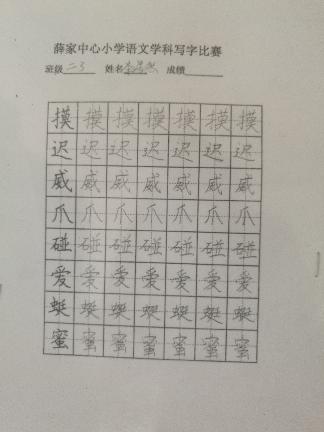 薛家中心小学语文学科写字比赛
班级二3 姓名 成绩
摸 摸 摸 摸 摸 摸 摸
迟 迟 迟 迟 迟 迟 迟
威 威 威 威 威 威 威
爪 爪 爪 爪 爪 爪 爪
碰 碰 碰 碰 碰 碰 碰
爱 爱 爱 爱 爱 爱 爱
蜓 蜓 蜓 蜓 蜓 蜓 蜓
蜜 蜜 蜜 蜜 蜜 蜜 蜜